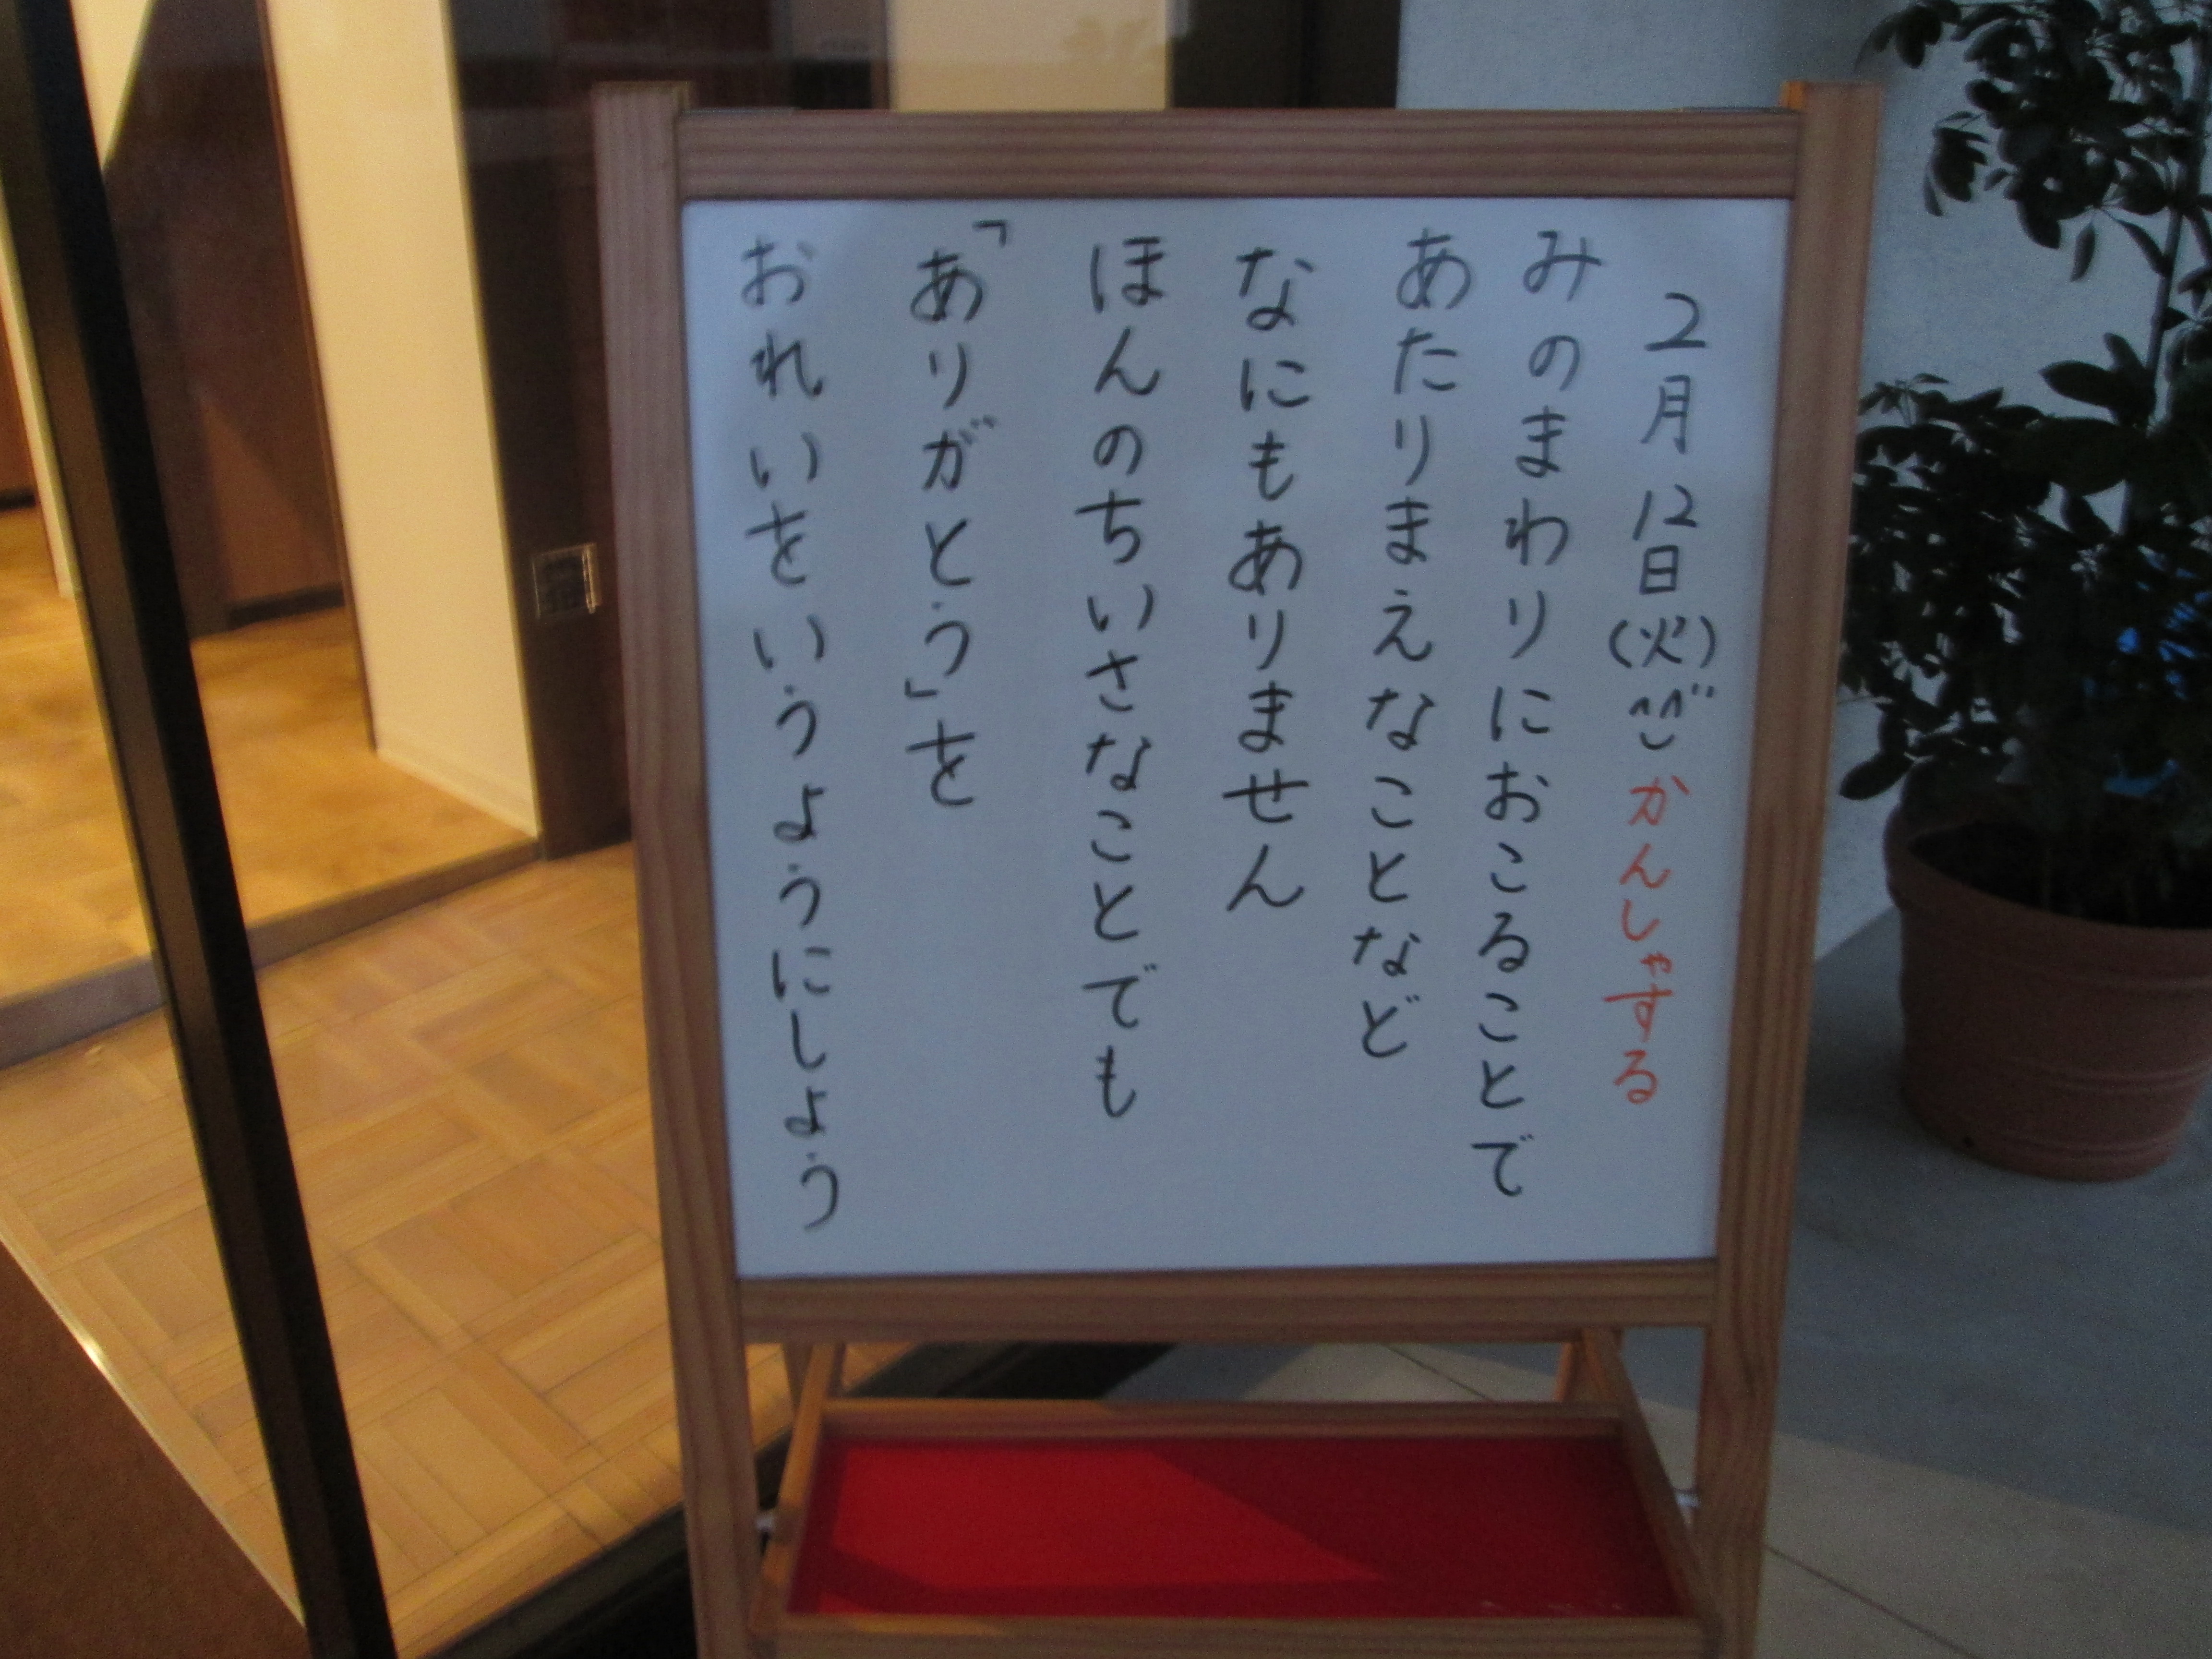 2月12日(火)^^かんしゃする
みのまわりにおこることで
あたりまえなことなど
なにもありません
ほんのちいさなことでも
「ありがとう」を
おれいをいうようにしましょう